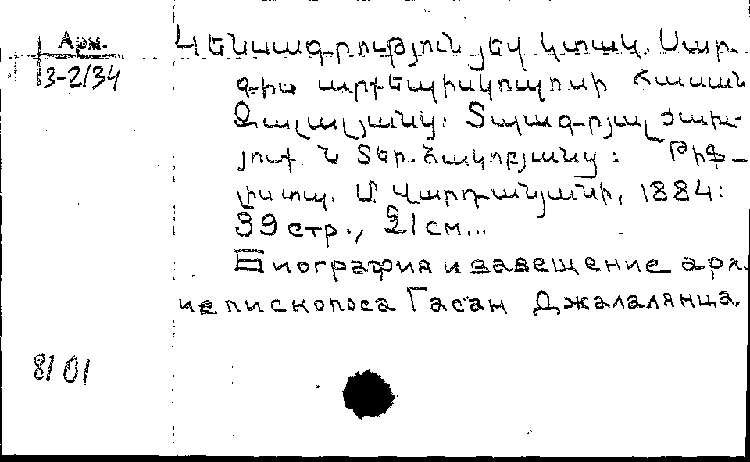 Арм.
3-2/34
Կենսագրություն յեվ կտակ. Սար-
գիս արքեպիսկոպոսի Հասան
Ջալալյանց. Տպագրյալ
Տեր. Հակոբյանց: Թիֆ-
լիս տպ. Մ Վարդանյանի, 1884:
39 стр., 21 см...
Биография и завещение арх.
иепископоса Гасан Джалалянца.
8101